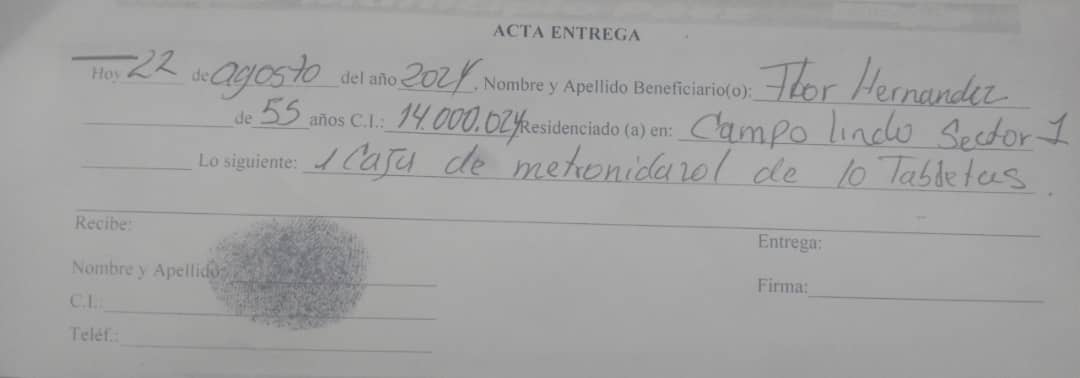 ACTA ENTREGA
Hoy 22 de agosto del año 2024. Nombre y Apellido Beneficiario(o): Hernandez
de 55 años C.I.: 14.000.024 Residenciado (a) en: Campo lindo Sector 1
Lo siguiente: 1 Caja de metronidazol de 10 Tabletas.
Recibe:
Entrega:
Nombre y Apellido:
Firma:
C.I.:
Teléf.: